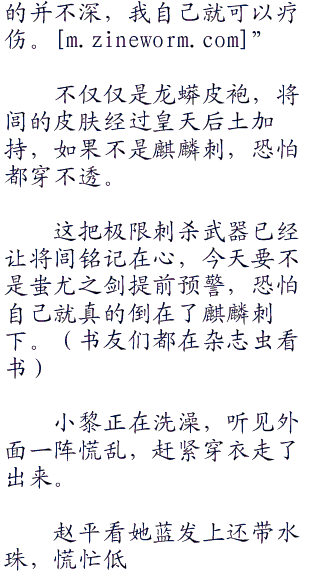 的并不深，我自己就可以疗
伤。[m.zineworm.com]”
不仅仅是龙蟒皮袍，将
闾的皮肤经过皇天后土加
持，如果不是麒麟刺，恐怕
都穿不透。
这把极限刺杀武器已经
让将闾铭记在心，今天要不
是蚩尤之剑提前预警，恐怕
自己就真的倒在了麒麟刺
下。（书友们都在杂志虫看
书）
小黎正在洗澡，听见外
面一阵慌乱，赶紧穿衣走了
出来。
赵平看她蓝发上还带水
珠，慌忙低